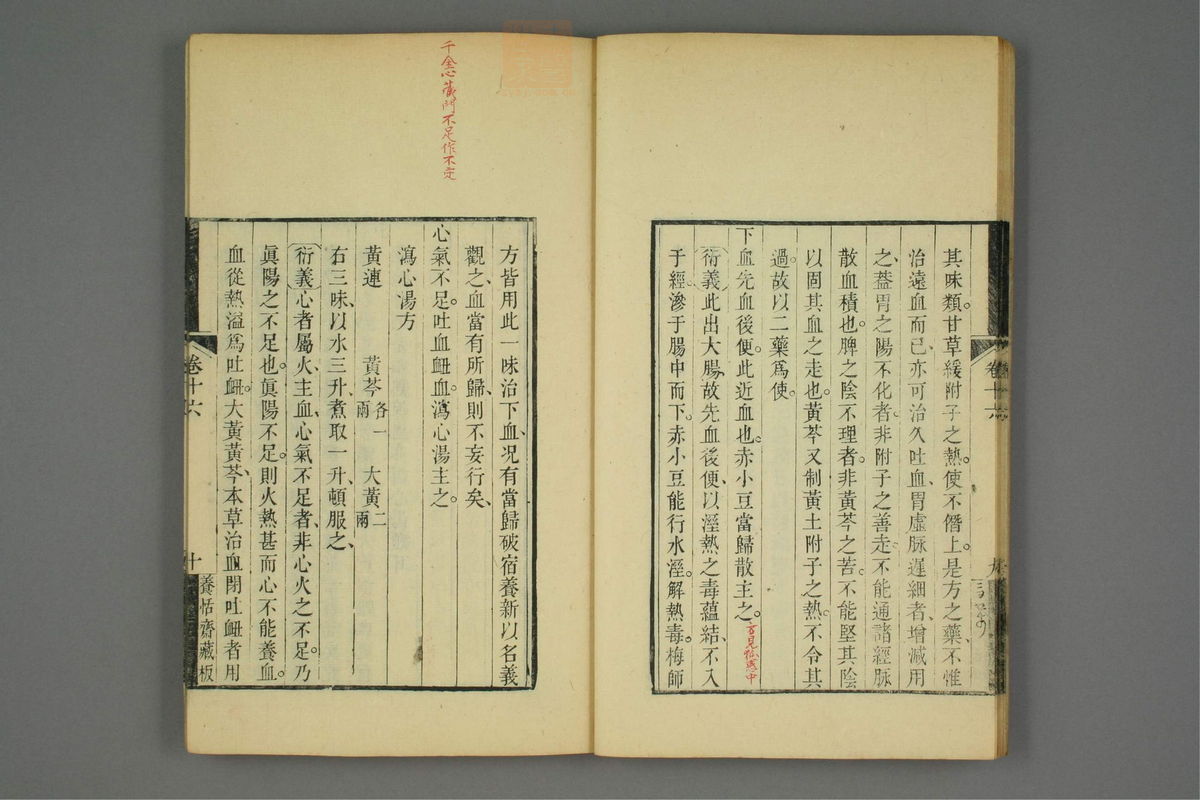 其味類甘草緩附子之熱。使不僭上。是方之藥、不惟
治遠血而已、亦可治久吐血、胃虛脉遲細者、增減用
之、蓋胃之陽不化者。非附子之善走。不能通諸經脉
散血積也。脾之陰不理者。非黃芩之苦。不能堅其陰
以固其血之走也。黃芩又制黃土附子之熱。不令其
過。故以二藥爲使。
下血先血後便。此近血也。赤小豆當歸散主之。
方見狐惑中
衍義此出大腸、故先血後便、以溼熱之毒蘊結、不入
于經、滲于腸中而下。赤小豆能行水溼。解熱毒。梅師
卷十六
方皆用此一味治下血、況有當歸破宿養新以名義
觀之、血當有所歸、則不妄行矣、
心氣不足。吐血衄血。瀉心湯主之。
千金心藏門不足作不定
瀉心湯方
黃連 黃芩各一兩 大黃二兩
右三味、以水三升、煮取一升、頓服之、
衍義心者屬火、主血、心氣不足者、非心火之不足。乃
眞陽之不足也。眞陽不足。則火熱甚而心不能養血。
血從熱溢爲吐衄。大黃黃芩、本草治血閉吐衄者用
卷十六 十 養恬齋藏板